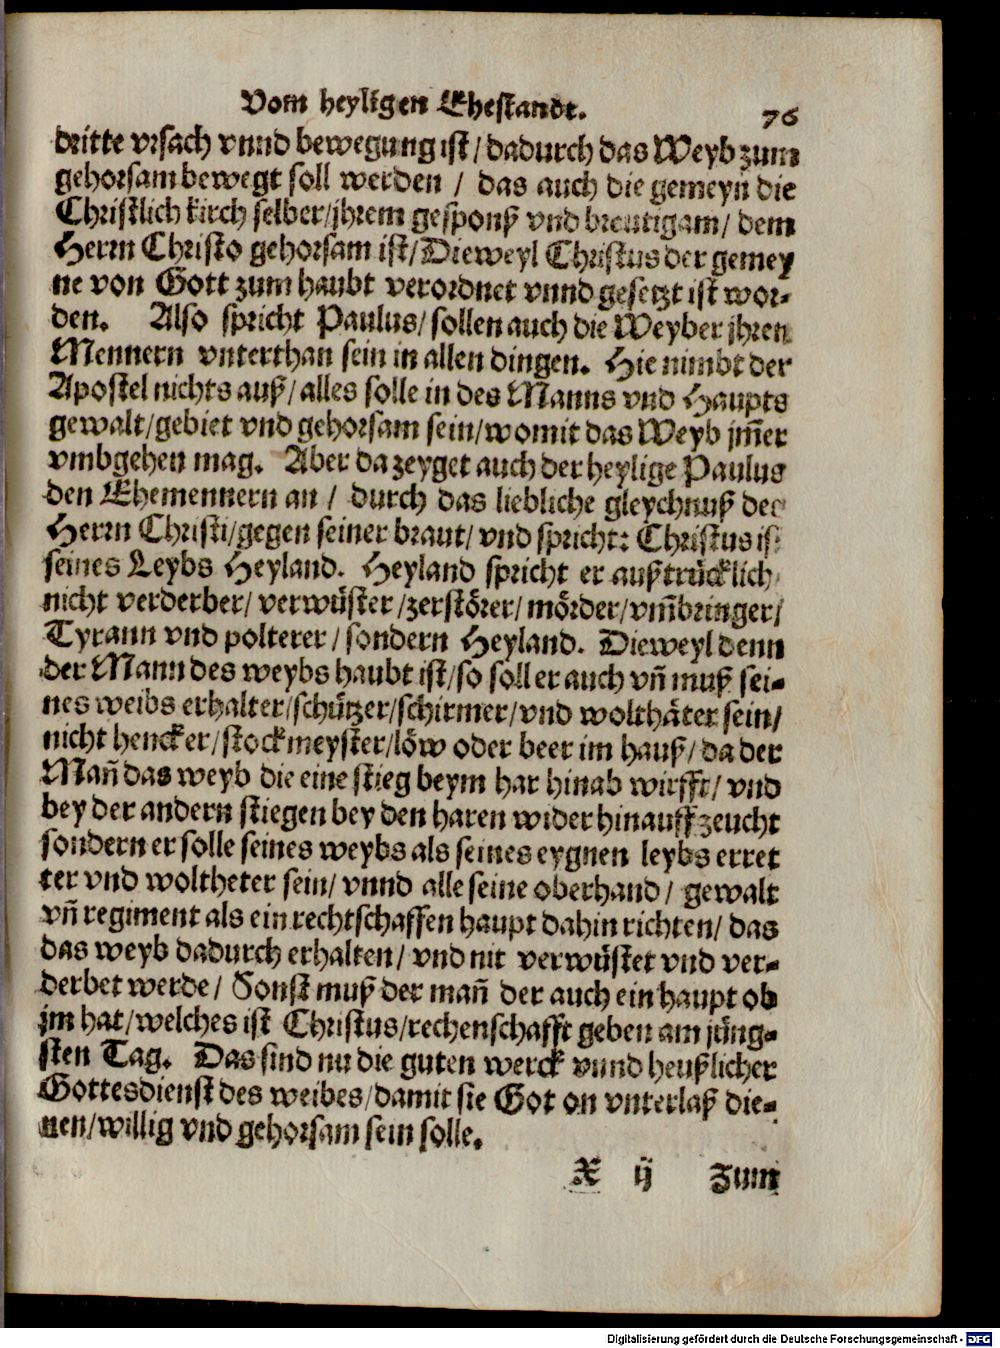 Vom heyligen Ehestandt. 76
dritte vrsach vnnd bewegung ist/ dadurch das Weyb zum
gehorsam bewegt soll werden / das auch die gemeyn die
Christlich kirch selber/jhrem gesponß vnd breutigam/ dem
Herrn Christo gehorsam ist/ Dieweyl Christus der gemey
ne von Gott zum haubt verordnet vnnd gesetzt ist wor-
den. Also spricht Paulus/ sollen auch die Weyber jhren
Mennern vnterthan sein in allen dingen. Hie nimbt der
Apostel nichts auß/ alles solle in des Manns vnd Haupts
gewalt/gebiet vnd gehorsam sein/womit das Weyb jm̃er
vmbgehen mag. Aber da zeyget auch der heylige Paulus
den Ehemennern an / durch das liebliche gleychnuß des
Herrn Christi/gegen seiner braut/ vnd spricht: Christus ist
seines Leybs Heyland. Heyland spricht er außtrücklich
nicht verderber/ verwüster/zerstörer/ mörder/vm̃bringer/
Tyrann vnd polterer/ sondern Heyland. Dieweyl denn
der Mann des weybs haubt ist/so soll er auch vn̄ muß sei-
nes weibs erhalter/schützer/schirmer/vnd wolthäter sein/
nicht hencker/stockmeyster/löw oder beer im hauß/ da der
Mañ das weyb die eine stieg beym har hinab wirfft/ vnd
bey der andern stiegen bey den haren wider hinauff zeucht
sondern er solle seines weybs als seines eygnen leybs erret
ter vnd woltheter sein/ vnnd alle seine oberhand/ gewalt
vn̄ regiment als ein rechtschaffen haupt dahin richten/ das
das weyb dadurch erhalten/ vnd nit verwüstet vnd ver-
derbet werde/ Sonst muß der mañ der auch ein haupt ob
jm hat/welches ist Christus/rechenschafft geben am jüng-
sten Tag. Das sind nu die guten werck vnnd heußlicher
Gottesdienst des weibes/damit sie Got on vnterlaß die-
nen/willig vnd gehorsam sein solle.
X ij Zum
Digitalisierung gefördert durch die Deutsche Forschungsgemeinschaft - DFG